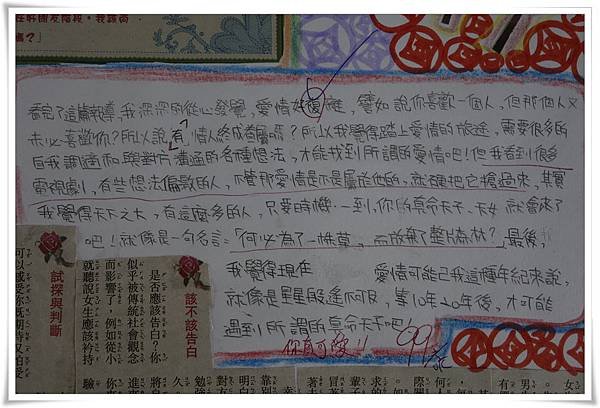 在好朋友階段，我該須
嗎？」
看完了這篇報導，我深深的從心發覺，愛情好複雜，譬如說你喜歡一個人，但那個人又
未必喜歡你？所以說有情人終成眷屬嗎？所以我覺得踏上愛情的旅途，需要很多的
自我調適和與對方溝通的各種想法，才能找到所謂的愛情吧！但我看到很多
電視劇，有些想法偏激的人，不管那愛情是不是屬於他的，就硬把它搶過來，其實
我覺得天下之大，有這麼多的人，只要時機一到，你的真命天子、天女就會來了
吧！就像是一句名言：「何必為了一株草，而放棄了整片森林？」最後，
我覺得現在 愛情可能已我這種年紀來說，
就像是星星般遙何及，等10年20年後，才可能
遇到所謂的真命天子吧！
你真可愛！！
99
試探與判斷
可以感受你
既期待又
該不該告白
是否應該告白？你
似乎被傳統社會觀念
面影響了，例如從小
就聽說女生應該矜持